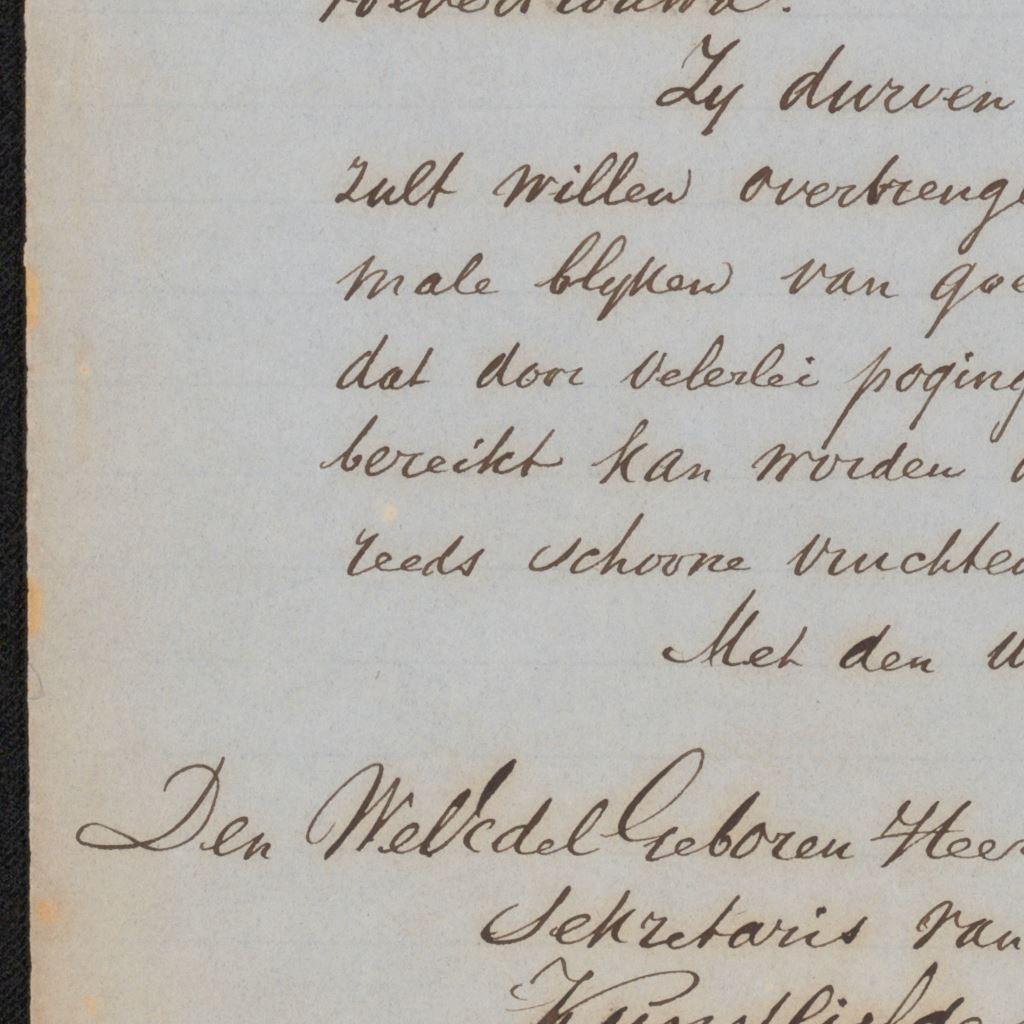 Zy durven
zult willen overbrenge
male blyken van goe
dat door velerlei poging
bereikt kan worden
reeds schoone vruchten
Met den
Den WelEdelGeboren Heer
Sekretaris van
Kunstliefde